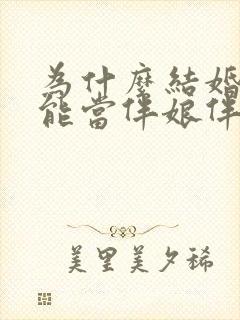 為什麼結婚
能當伴娘伴
美里美夕稀